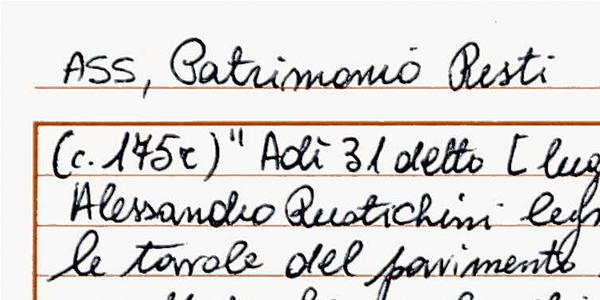 ASS, Patrimonio Resti
(c. 175r) " Adì 31 detto [ lug
Alessandro Quotichini
le tavole del pavimento